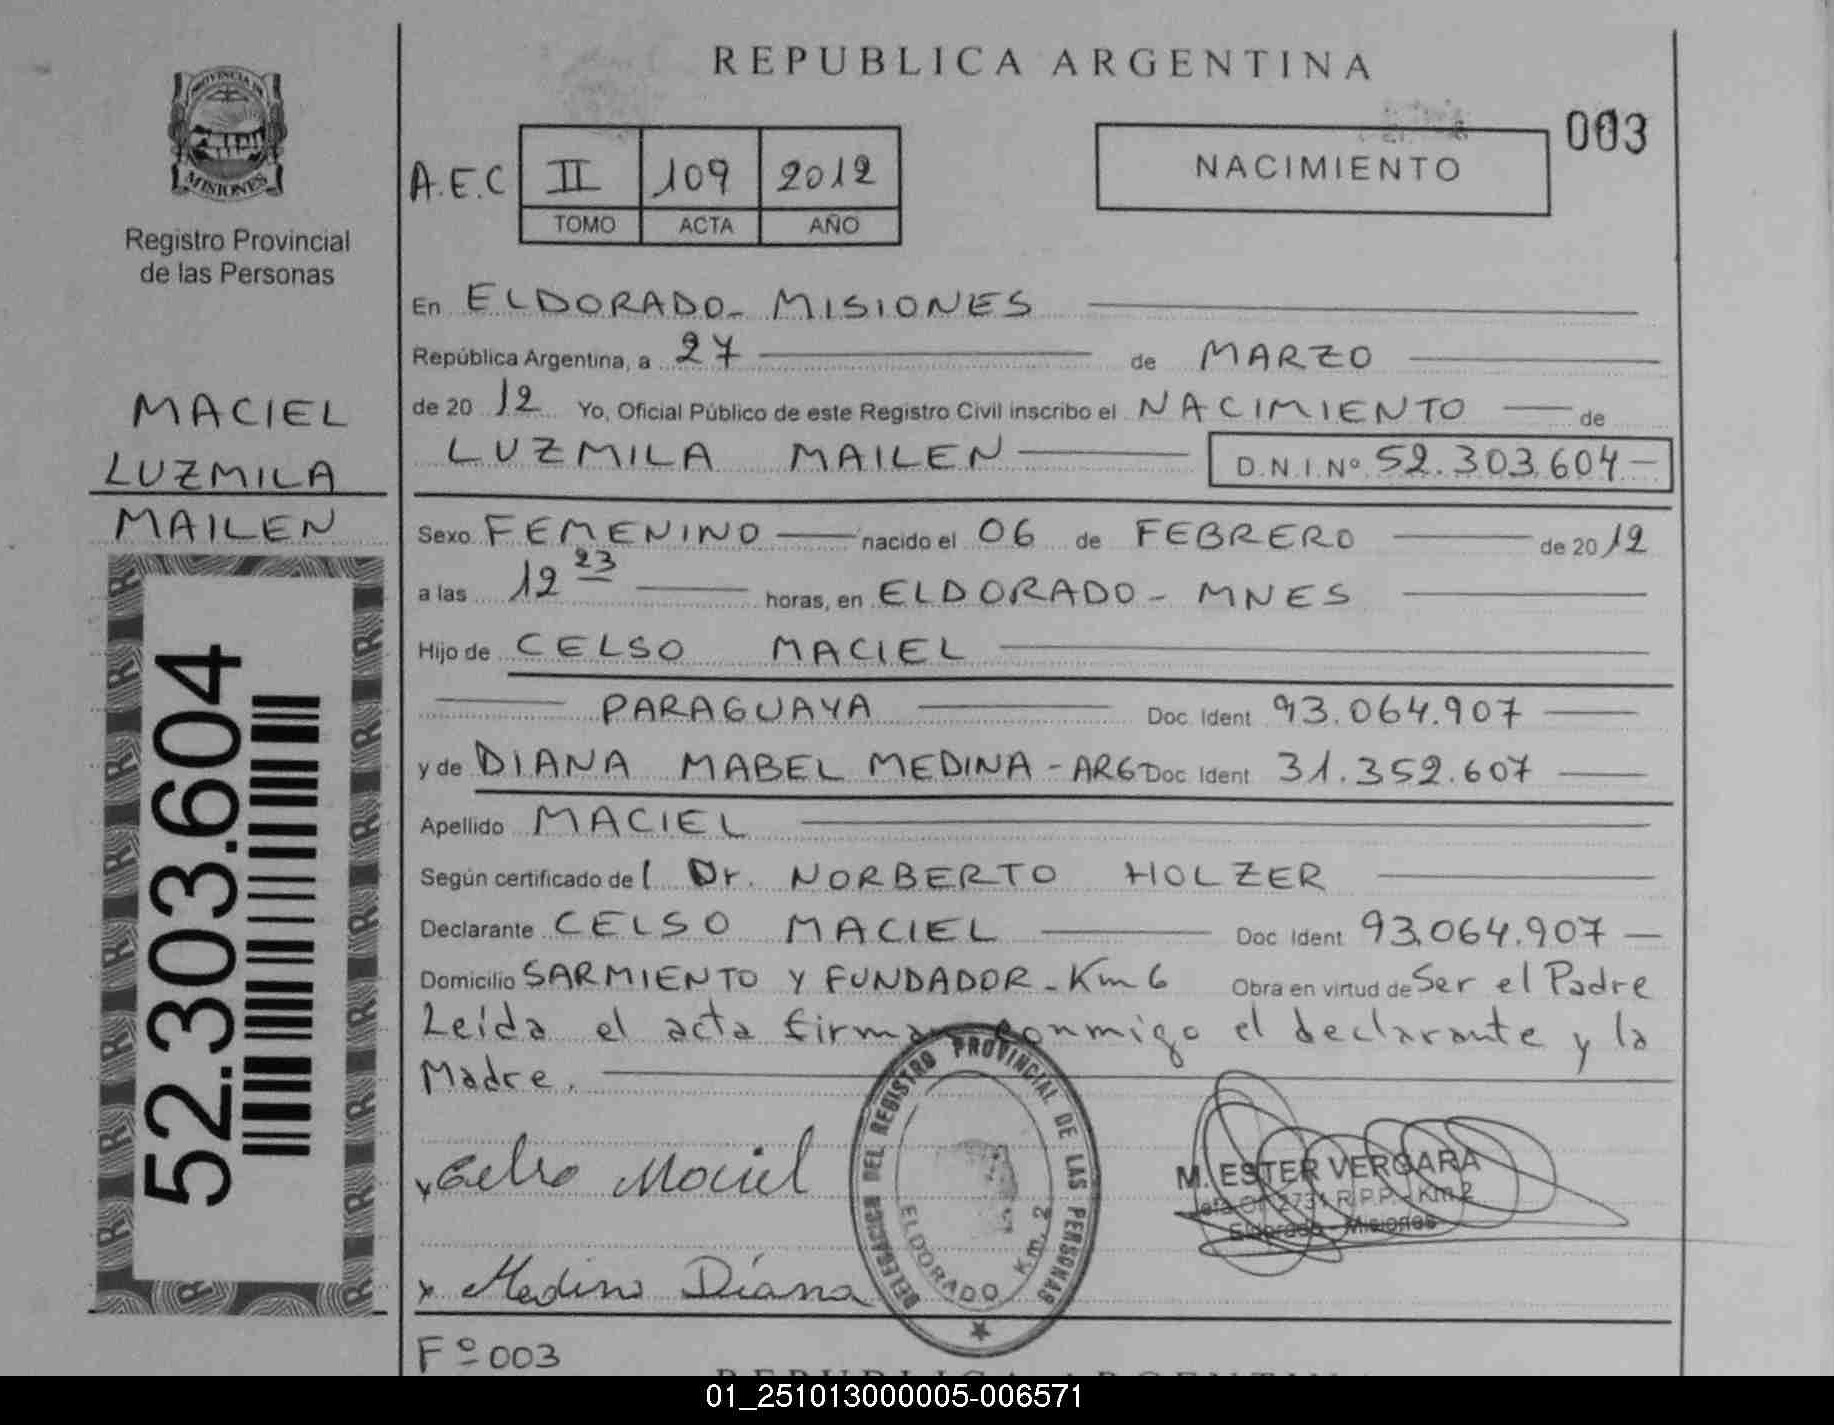 PROVINCIA DE
MISIONES
Registro Provincial
de las Personas
MACIEL
LUZMILA
MAILEN
52.303.604
REPUBLICA ARGENTINA
003
A.E.C II 109 2012
TOMO ACTA AÑO
NACIMIENTO
En ELDORADO - MISIONES
República Argentina, a 27 de MARZO
de 20 12 Yo, Oficial Público de este Registro Civil inscribo el NACIMIENTO de
LUZMILA MAILEN D.N.I.Nº 52.303.604
Sexo FEMENINO nacido el 06 de FEBRERO de 20 12
a las 12 23 horas, en ELDORADO - MNES
Hijo de CELSO MACIEL
PARAGUAYA Doc. Ident 93.064.907
y de DIANA MABEL MEDINA - ARG Doc Ident 31.352.607
Apellido MACIEL
Según certificado de l Dr. NORBERTO HOLZER
Declarante CELSO MACIEL Doc Ident 93.064.907
Domicilio SARMIENTO Y FUNDADOR - Km 6 Obra en virtud de Ser el Padre
Leída el acta firman conmigo el declarante y la
Madre.
x Celso Maciel
x Medina Diana
DELEGACION DEL REGISTRO PROVINCIAL DE LAS PERSONAS
ELDORADO Km. 2
M. ESTER VERGARA
Jefa Of. 2731 R.P.P. - Km 2
Eldorado - Misiones
Fº 003
REPUBLICA ARGENTINA
01_251013000005-006571